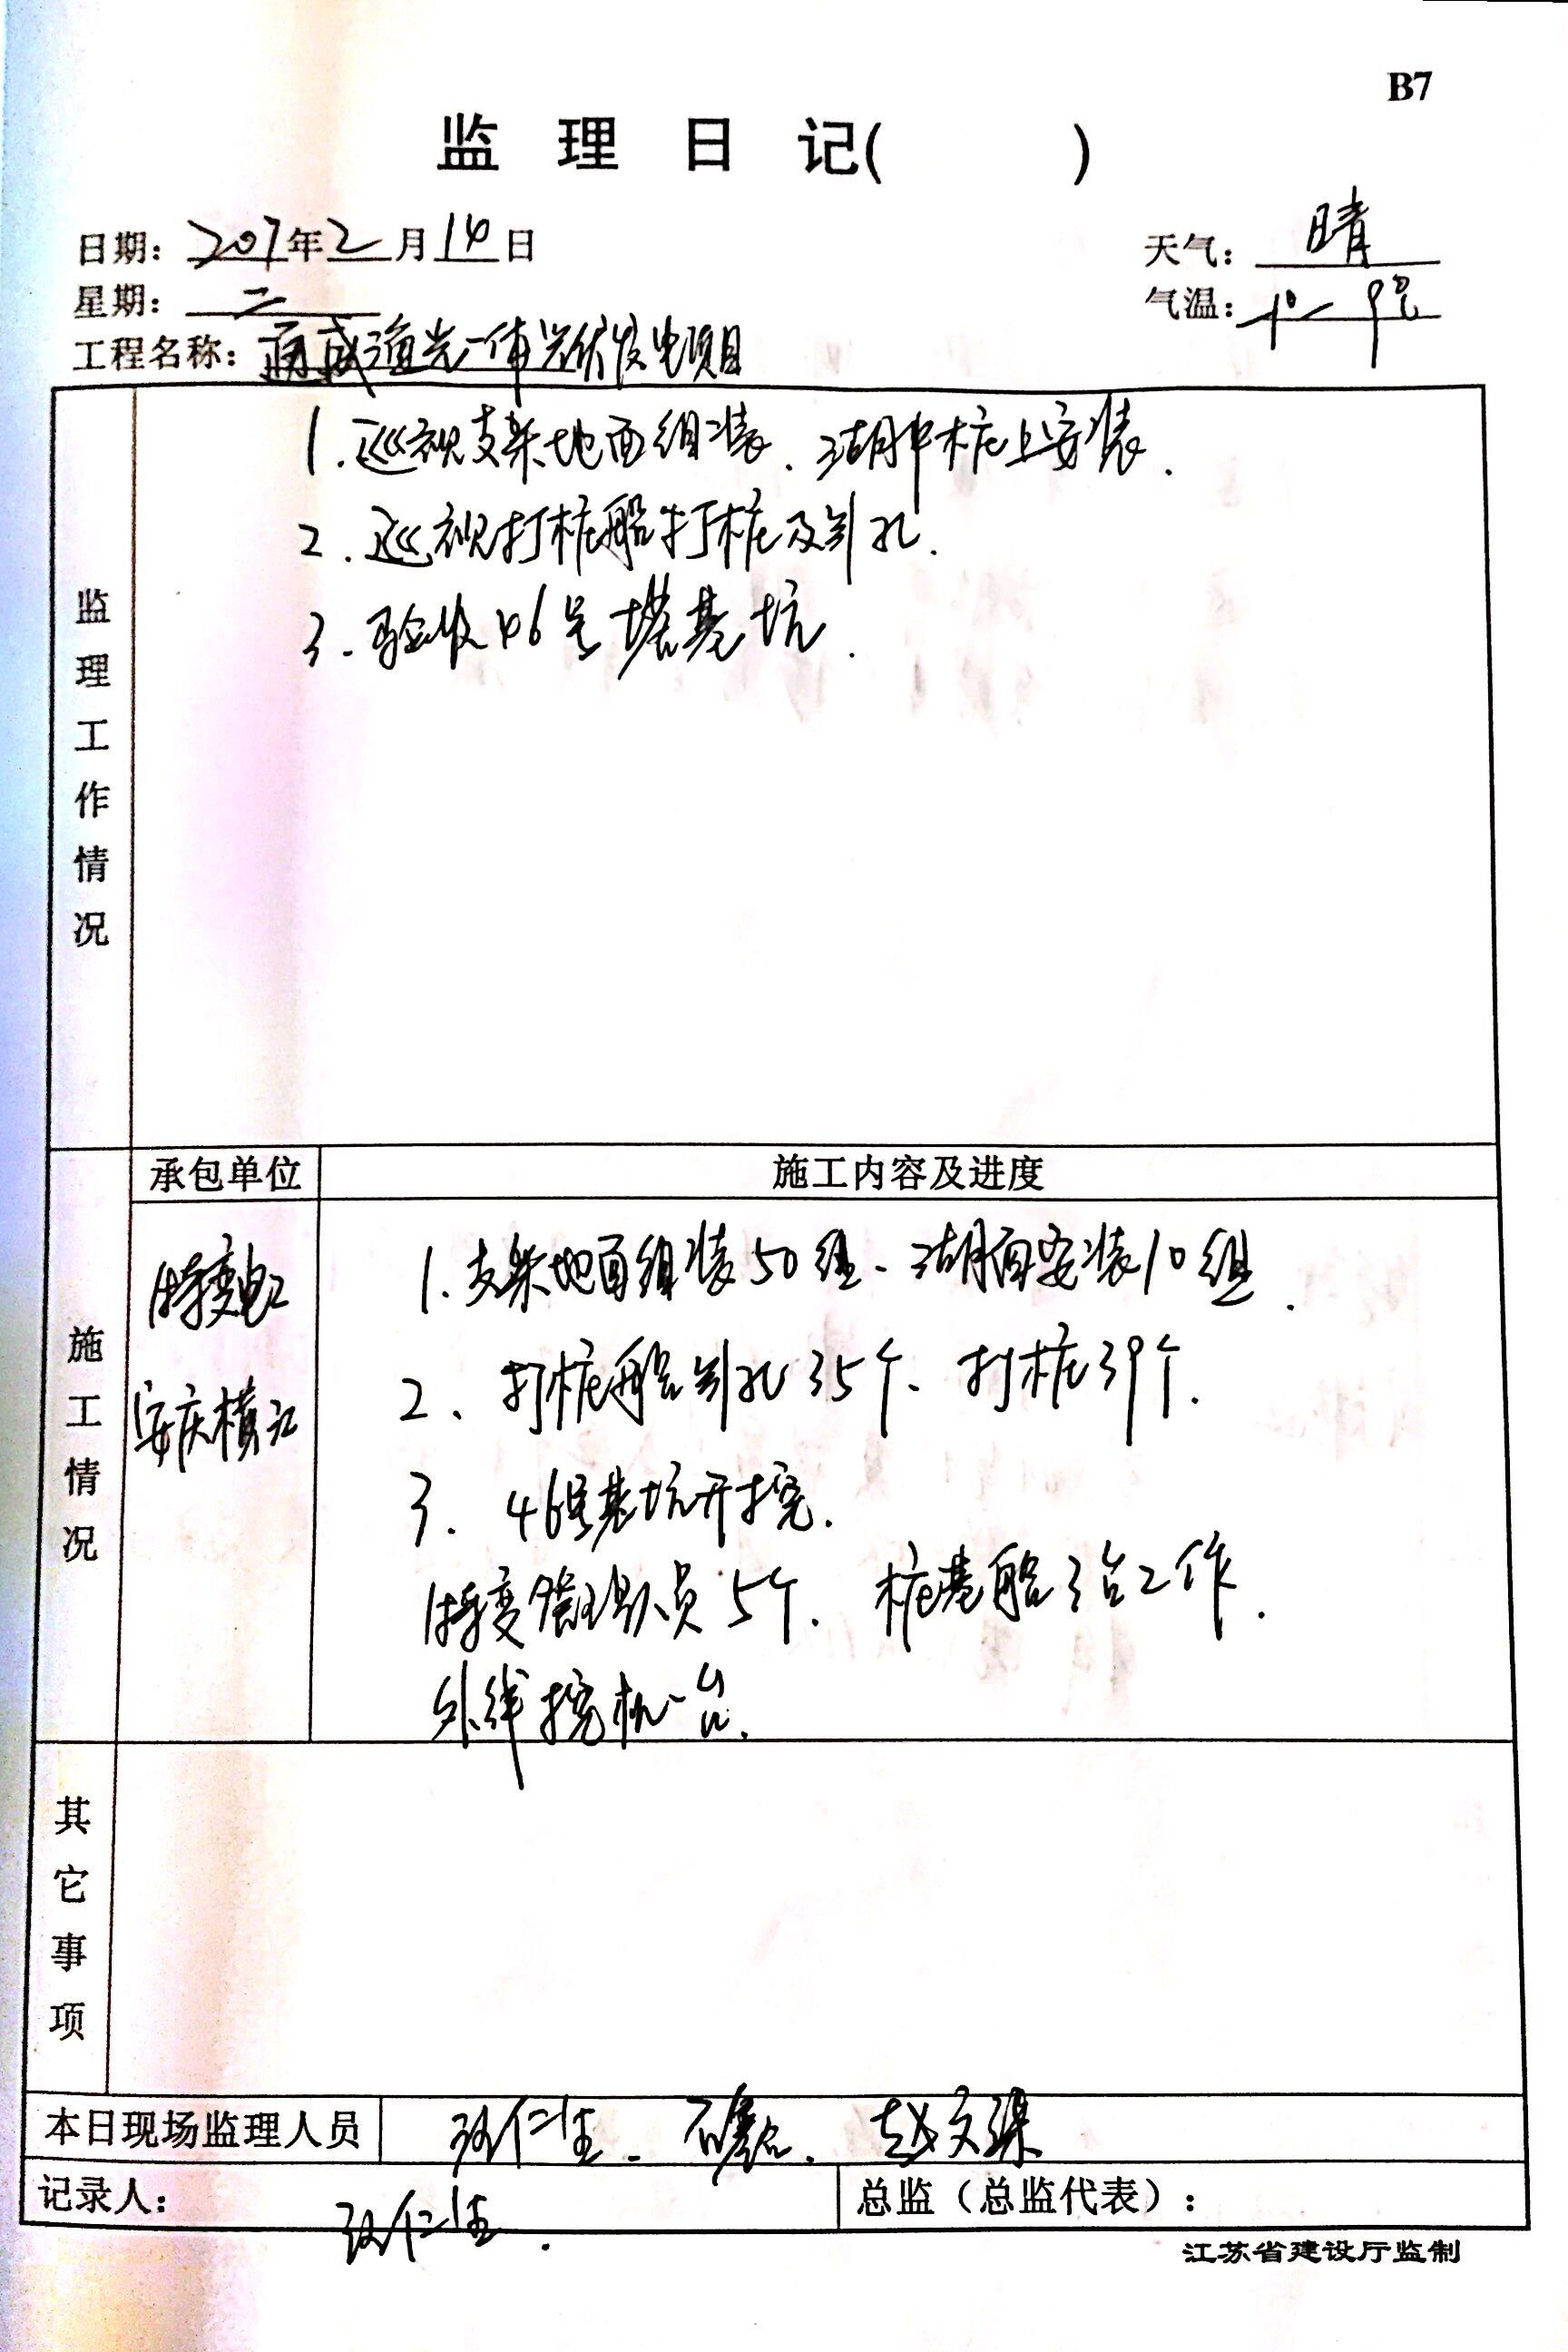 B7
监理日记( )
日期：2017年2月14日
天气：晴
星期：二
气温：
工程名称：通威渔光一体光伏发电项目
监理工作情况
1.巡视支架地面组装、湖中桩上安装.
2.巡视打桩船打桩及引孔.
3.验收46号塔基坑.
施工情况
承包单位
施工内容及进度
特变电工
安庆横江
1.支架地面组装50组、湖面安装10组.
2、打桩船引孔35个、打桩39个.
3.46号基坑开挖.
特变管理人员5个.桩基船3台工作.
外线挖机一台.
其它事项
本日现场监理人员
仁 、石磊、赵文
记录人：
仁
总监（总监代表）：
江苏省建设厅监制